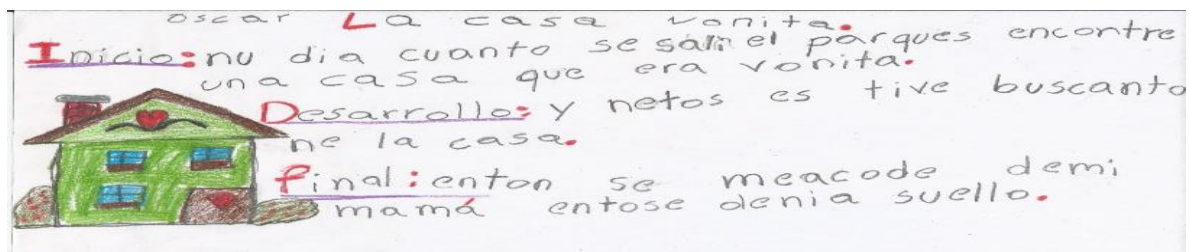 oscar La casa vonita.
Inicio: nu dia cuanto se el parques encontre
una casa que era vonita.
Desarrollo: y netos es tive buscanto
ne la casa.
final: enton se meacode demi
mamá entose denia suello.